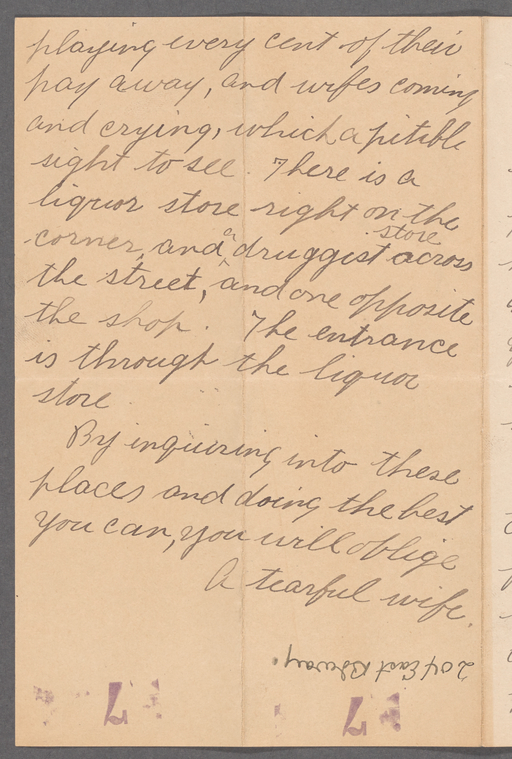 playing every cent of their
pay away, and wifes coming
and crying, which a pitible
sight to see. There is a
liquor store right on the
corner, and a druggist store across
the street, and one opposite
the shop. The entrance
is through the liquor
store.
By inquiring into these
places and doing the best
you can, you will oblige
A tearful wife.
204 East Bdway.
7 7